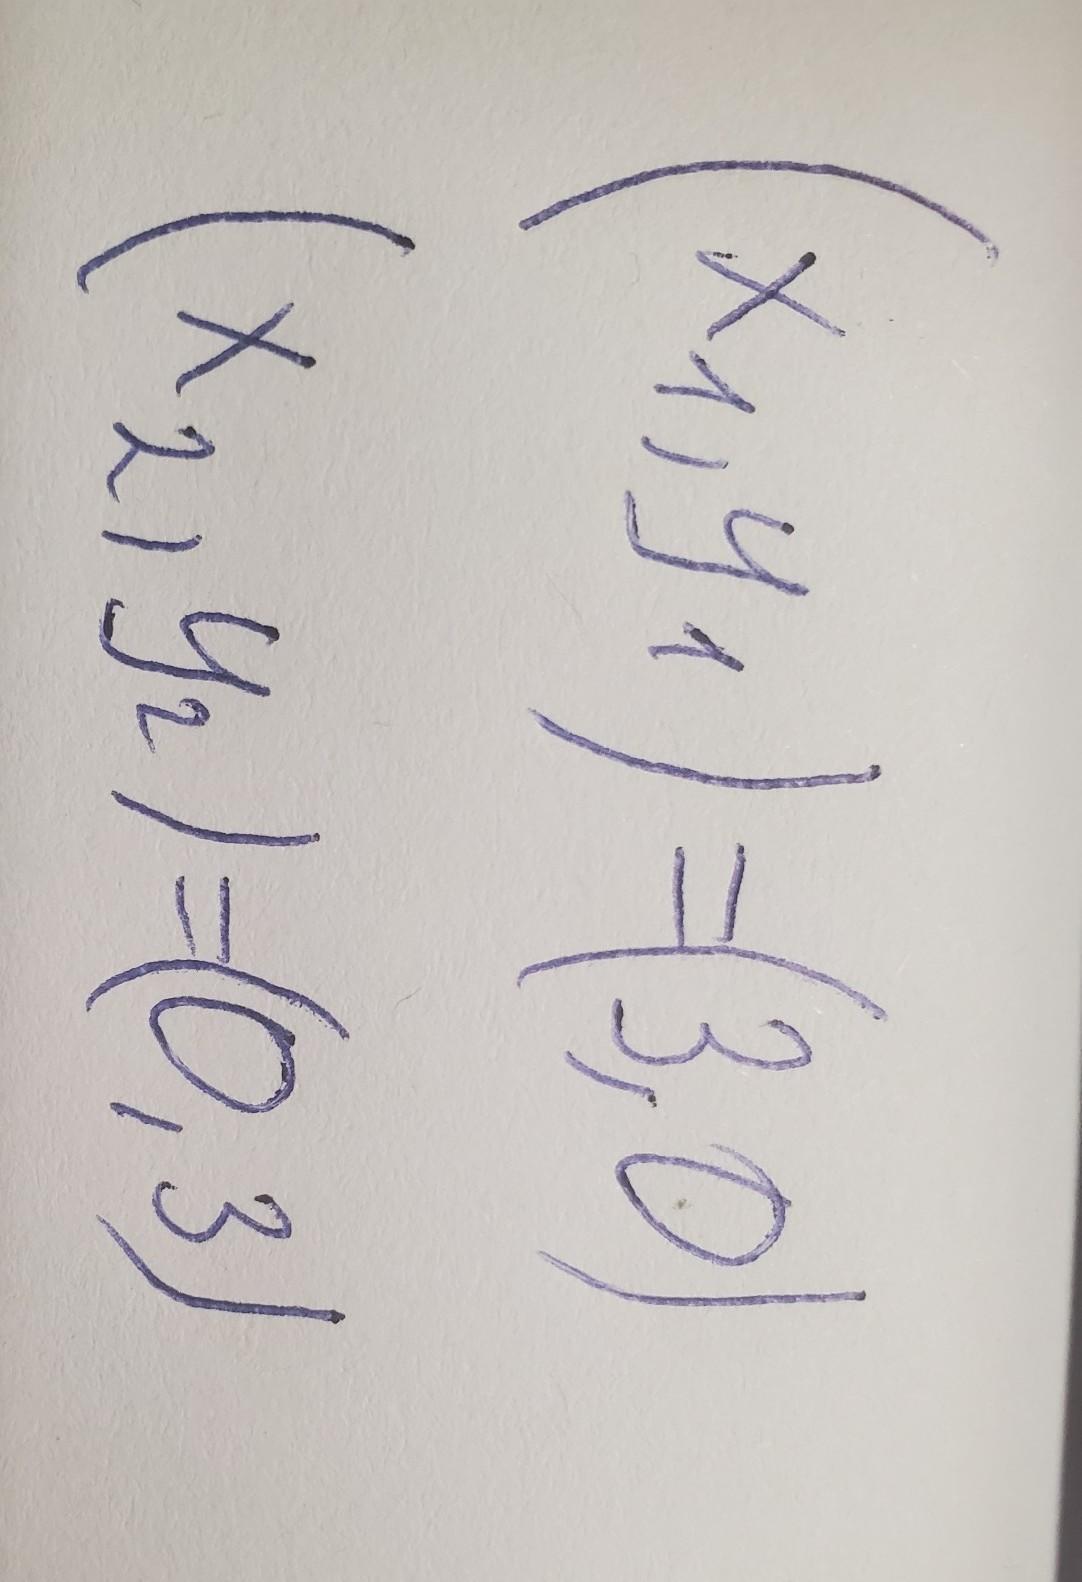 (x₁, y₁) = (3, 0)
(x₂, y₂) = (0, 3)